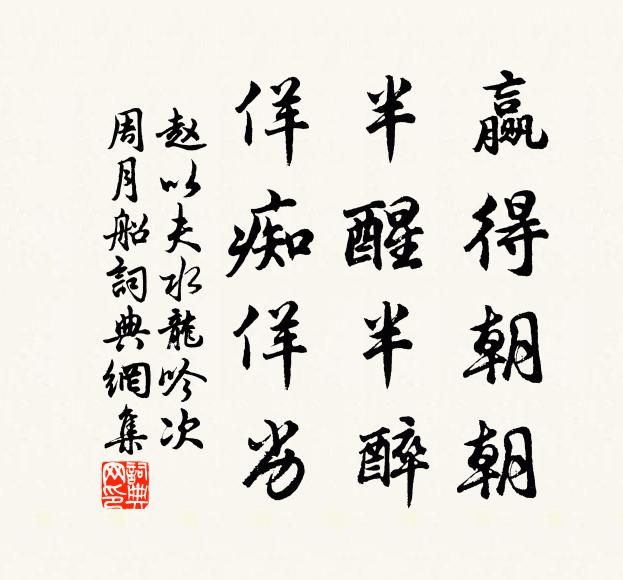 贏得朝朝
半醒半醉
佯痴佯劣
赵以夫水龍吟次
周月船詞典網集
詞典网印